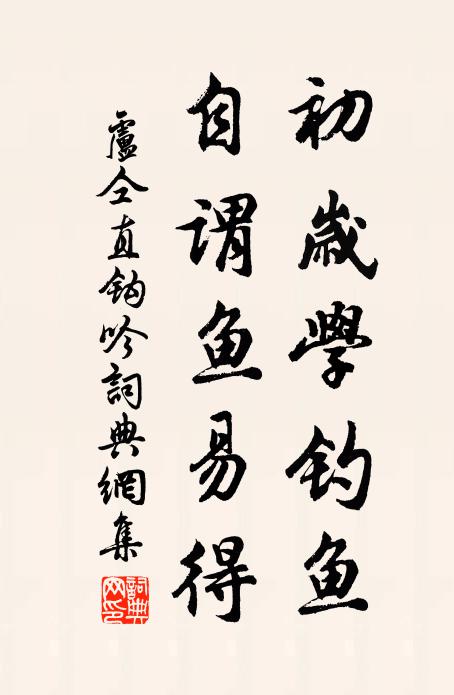 初歲學钓鱼
自謂鱼易得
盧仝直鈎吟詞典網集
詞典网印